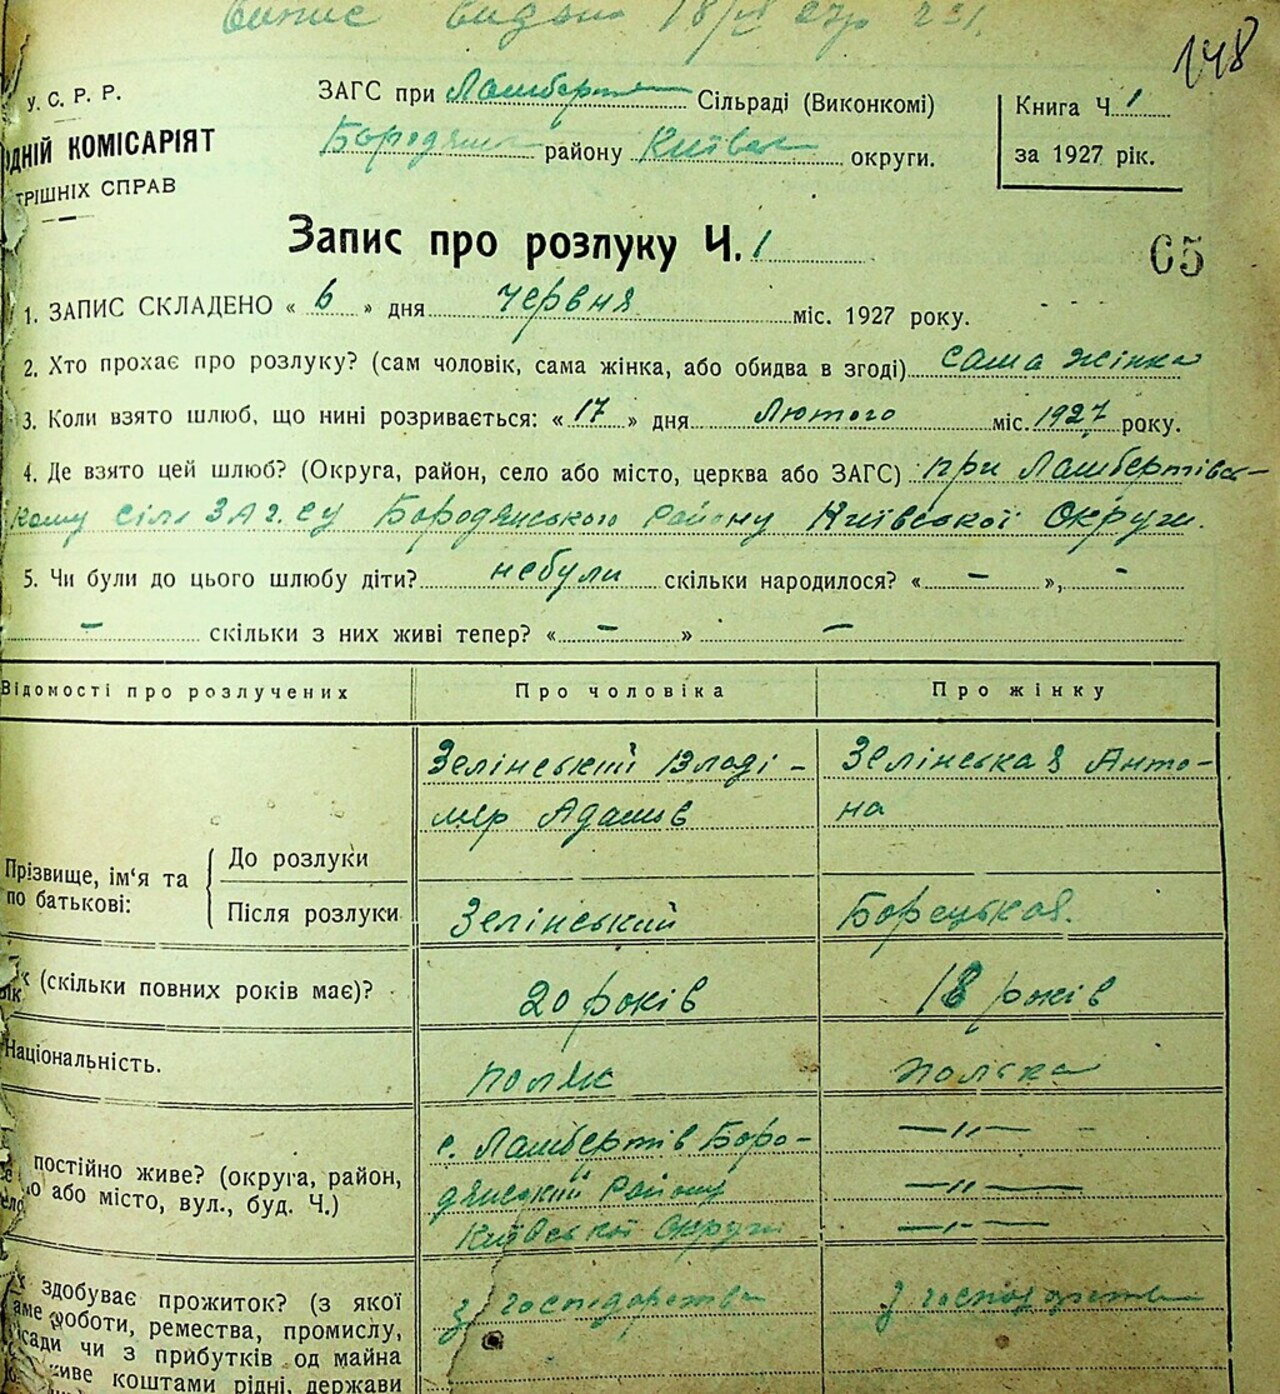 148
У. С. Р. Р.
ЗАГС при Ламберт Сільраді (Виконкомі)
Книга Ч. 1
ОДНІЙ КОМІСАРІЯТ
Бородянс району Київськ округи.
за 1927 рік.
ТРІШНІХ СПРАВ
Запис про розлуку Ч. 1
65
1. ЗАПИС СКЛАДЕНО « 6 » дня червня міс. 1927 року.
2. Хто прохає про розлуку? (сам чоловік, сама жінка, або обидва в згоді) сама жінка
3. Коли взято шлюб, що нині розривається: « 17 » дня Лютого міс. 1927 року.
4. Де взято цей шлюб? (Округа, район, село або місто, церква або ЗАГС) при Ламбертівсь-
кому сіль ЗАГ.Су Бородянського Району Київської Округи.
5. Чи були до цього шлюбу діти? небули скільки народилося? « – », –
– скільки з них живі тепер? « – » –
Відомості про розлучених Про чоловіка Про жінку
Зелінський Владі- Зелінськая Анто-
мер Адамів на
Прізвище, ім'я та по батькові: До розлуки
Після розлуки Зелінський Борецькая.
ік (скільки повних років має)? 20 років 18 років
Національність. поляк полька
постійно живе? (округа, район, с. Ламбертів Боро- —„—
о або місто, вул., буд. Ч.) дянський Району —„—
Київської Округи —„—
здобуває прожиток? (з якої з господарства з господарства
аме роботи, ремества, промислу,
сади чи з прибутків од майна
живе коштами рідні, держави